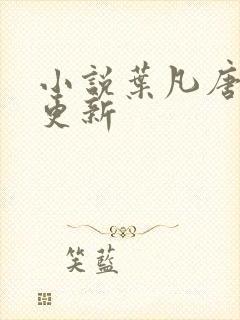 小説葉凡唐
更新
笑藍